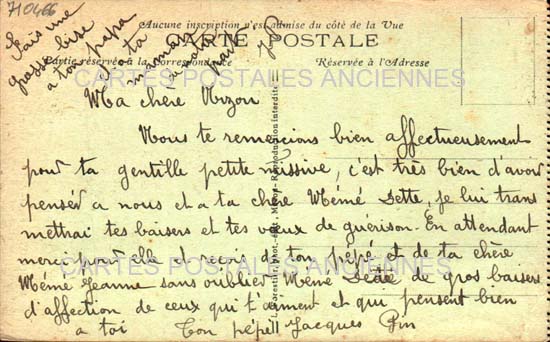 710466
Fais une
grosse bise
a ton papa
a ta
maman
a
Aucune inscription n'est admise du côté de la Vue
CARTE POSTALE
Partie réservée à la correspondance
Réservée à l'Adresse
CARTES POSTALES ANCIENNES
Ma chère Nizou
Nous te remercions bien affectueusement
pour ta gentille petite missive, c'est très bien d'avoir
pensér a nous et a ta chère Mémé Dette, je lui trans
mettrai tes baisers et tes vœux de guérison. En attendant
merci pour elle et reçois de ton pépé et de ta chère
Mémé Jeanne sans oublier Mémé Dette de gros baisers
d'affection de ceux qui t'aiment et qui pensent bien
a toi Ton pépé Jacques
CARTES POSTALES ANCIENNES
Reproduction interdite